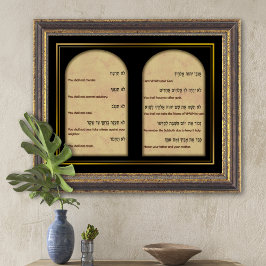 אנכי יהוה אלהיך
I am YHWH your God.
לא יהיה לך אלהים אחרים
You shall not have any other gods
לא תשא את שם יהוה לשוא
You shall not take the Name of YHWH in vain.
זכור את יום השבת לקדשו
Remember the Sabbath day to keep it holy.
כבד את אביך ואת אמך
Honor your father and your mother.
לא תרצח
You shall not murder.
לא תנאף
You shall not commit adultery.
לא תגנב
You shall not steal.
לא תענה ברעך עד שקר
You shall not bear false witness against your
neighbor.
לא תחמד
You shall not covet.